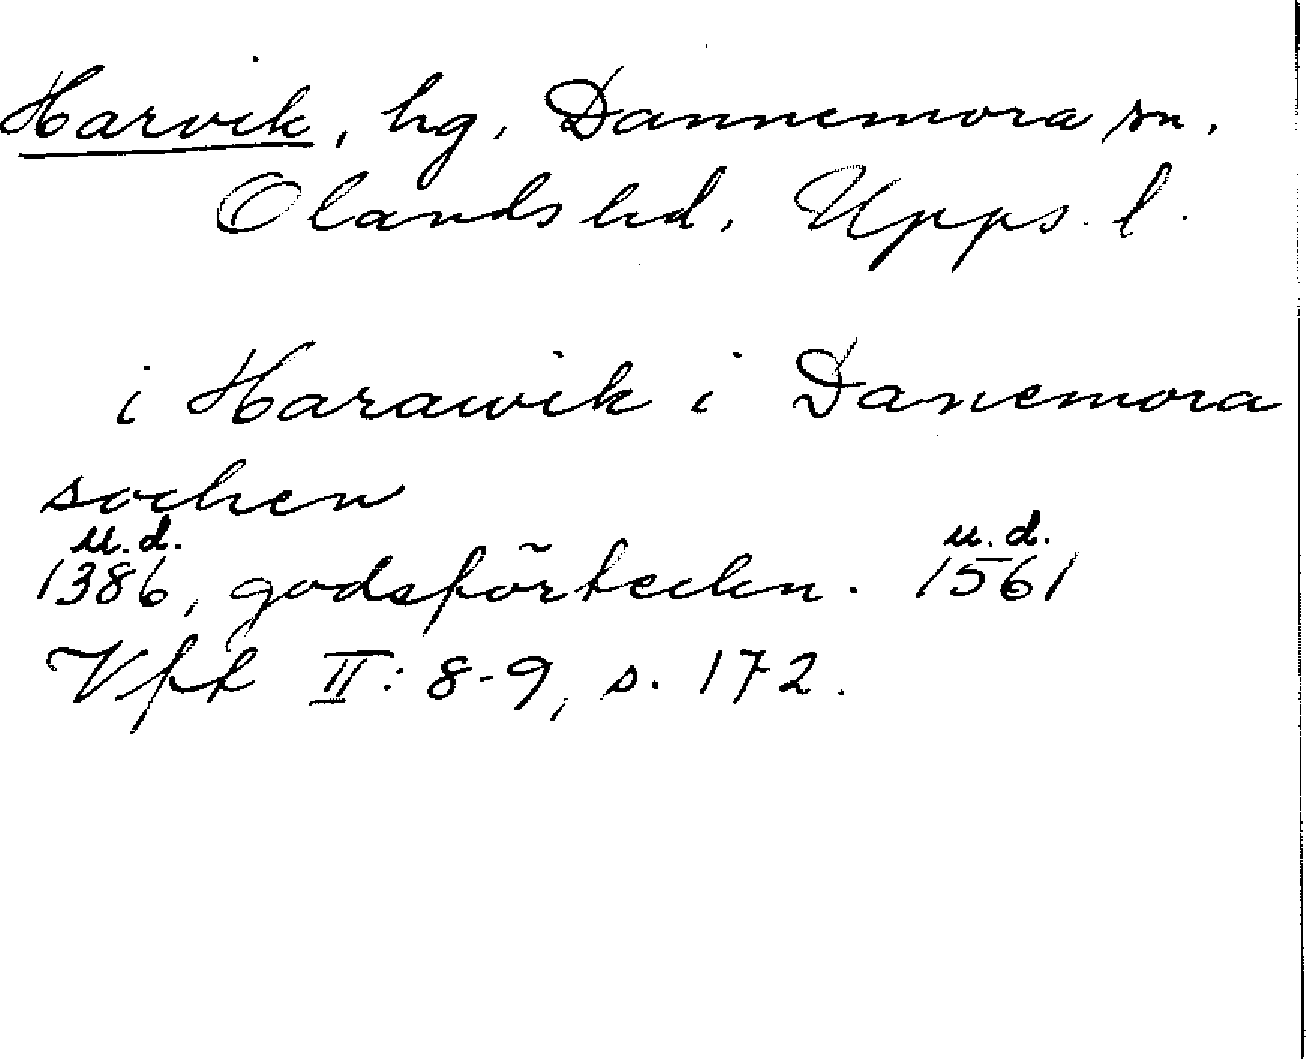 Harvik, hg, Dannemora sn,
Olands hd, Upps. l.
i Harawik i Danemora
sochen
u.d. u.d.
1386, godsförteckn. 1561
Vfk II: 8-9, s. 172.